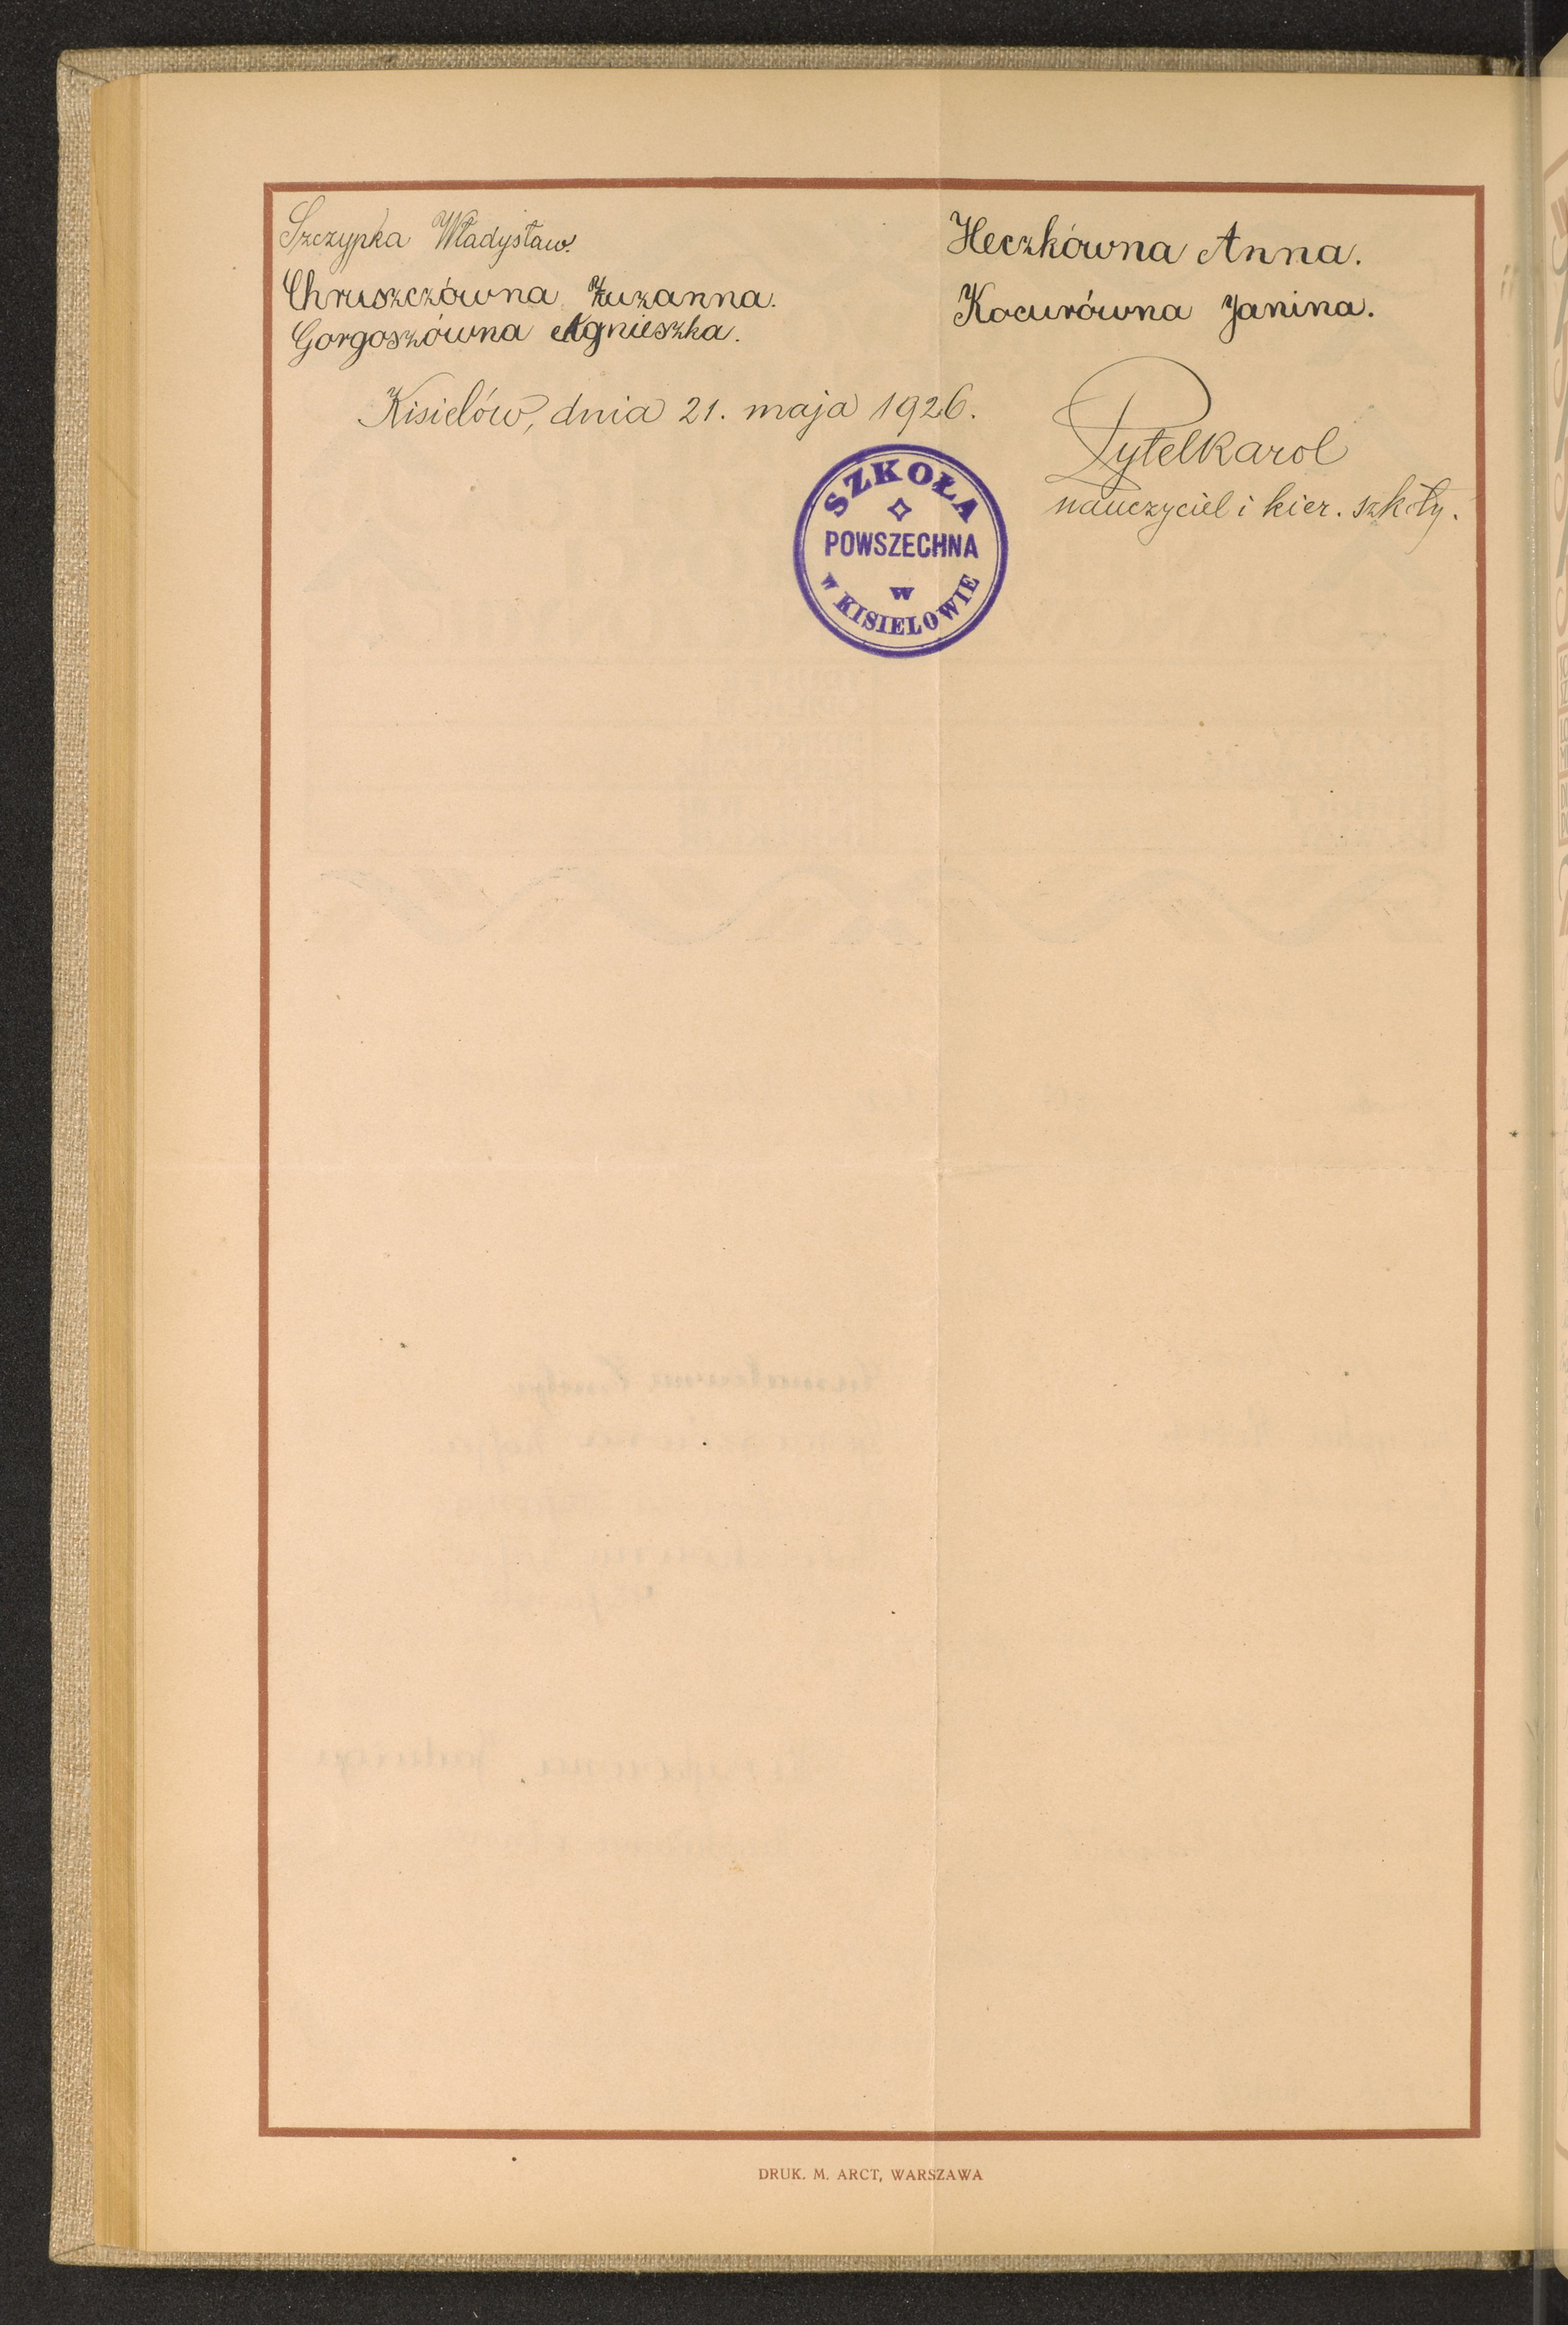 Szczypka Władysław.
Chruszczówna Zuzanna.
Gorgoszówna Agnieszka.
Heczkówna Anna.
Kocurówna Janina.
Kisielów, dnia 21. maja 1926.
Pytel Karol
nauczyciel i kier. szkoły.
SZKOŁA
POWSZECHNA
w
W KISIELOWIE
DRUK. M. ARCT, WARSZAWA